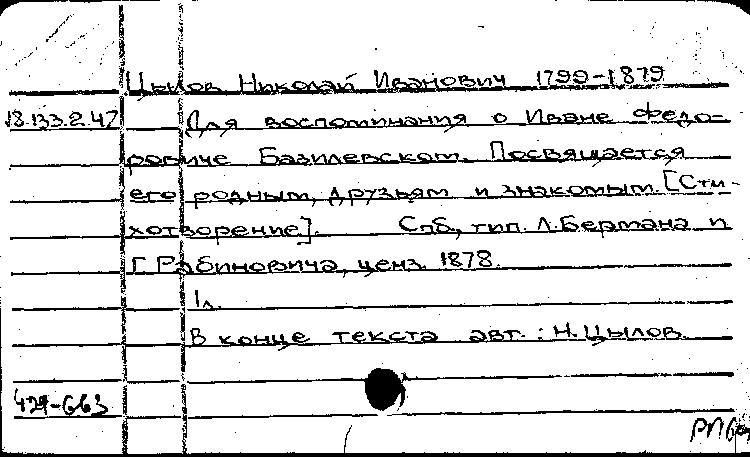 Цылов Николай Иванович 1799-1879
18.133.2.42 Для воспоминания о Иване Федо-
ровиче Базилевском. Посвящается
его родным, друзьям и знакомым. [Сти-
хотворение]. Спб, тип. Л. Бермана и
Г. Рабиновича, ценз. 1878.
1л.
В конце текста авт.: Н. Цылов.